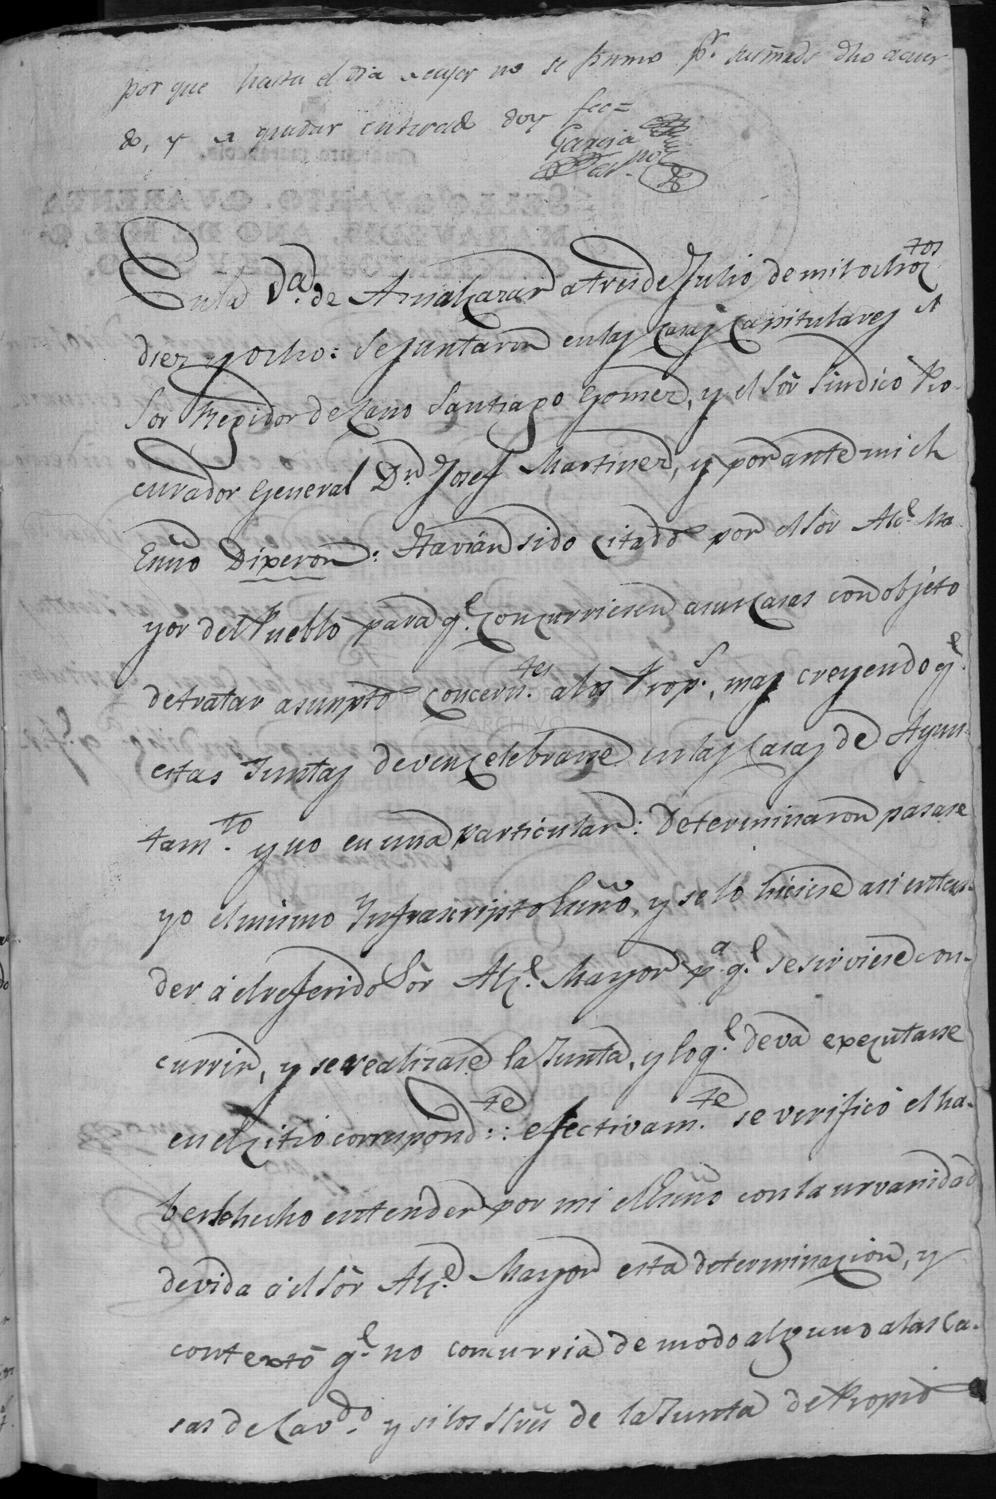 por que hasta el dia de ayer no se firmo pr. sumd. dho acuer
do, y a quedar enterado doy fee=
Garcia
En la Va. de Almazarron a tres de Julio de mil ochoztos
diez y ocho: se juntaron en las Casas Capitulares el
Sor Regidor decano Santiago Gomez, y el Sōr Sindico Pro-
curador General Dn. Josef Martinez, y por ante mi el
Essno Dixeron: Havian sido citados por el Sōr Alce. Ma-
yor del Pueblo para qe. concurriesen a sus Casas con objeto
de tratar asunptos concerntes. a los Props., mas creyendo qe.
estas Juntas deven celebrarse en las Casas de Ayun-
tamto. y no en una particular: Determinaron pasase
yo el mismo Infrascripto Essno, y se lo hiciese asi enten-
der a el referido Sōr Alce. Mayor pa. qe. se sirviese con-
currir, y se realizase la Junta, y lo qe. deva executarse
en el citio correspondte: efectivamte. se verificó el ha-
berle hecho entender por mi el Essno con la urvanidad
devida a el Sōr Alce. Mayor esta determinacion, y
contextó qe. no concurria de modo alguno a las Ca-
sas de Cavdo. y si los Sres de la Junta de Propios
ARCHIVO
SELLO QVARTO. QVARENTA
MARAVEDIS, AÑO DE MIL O